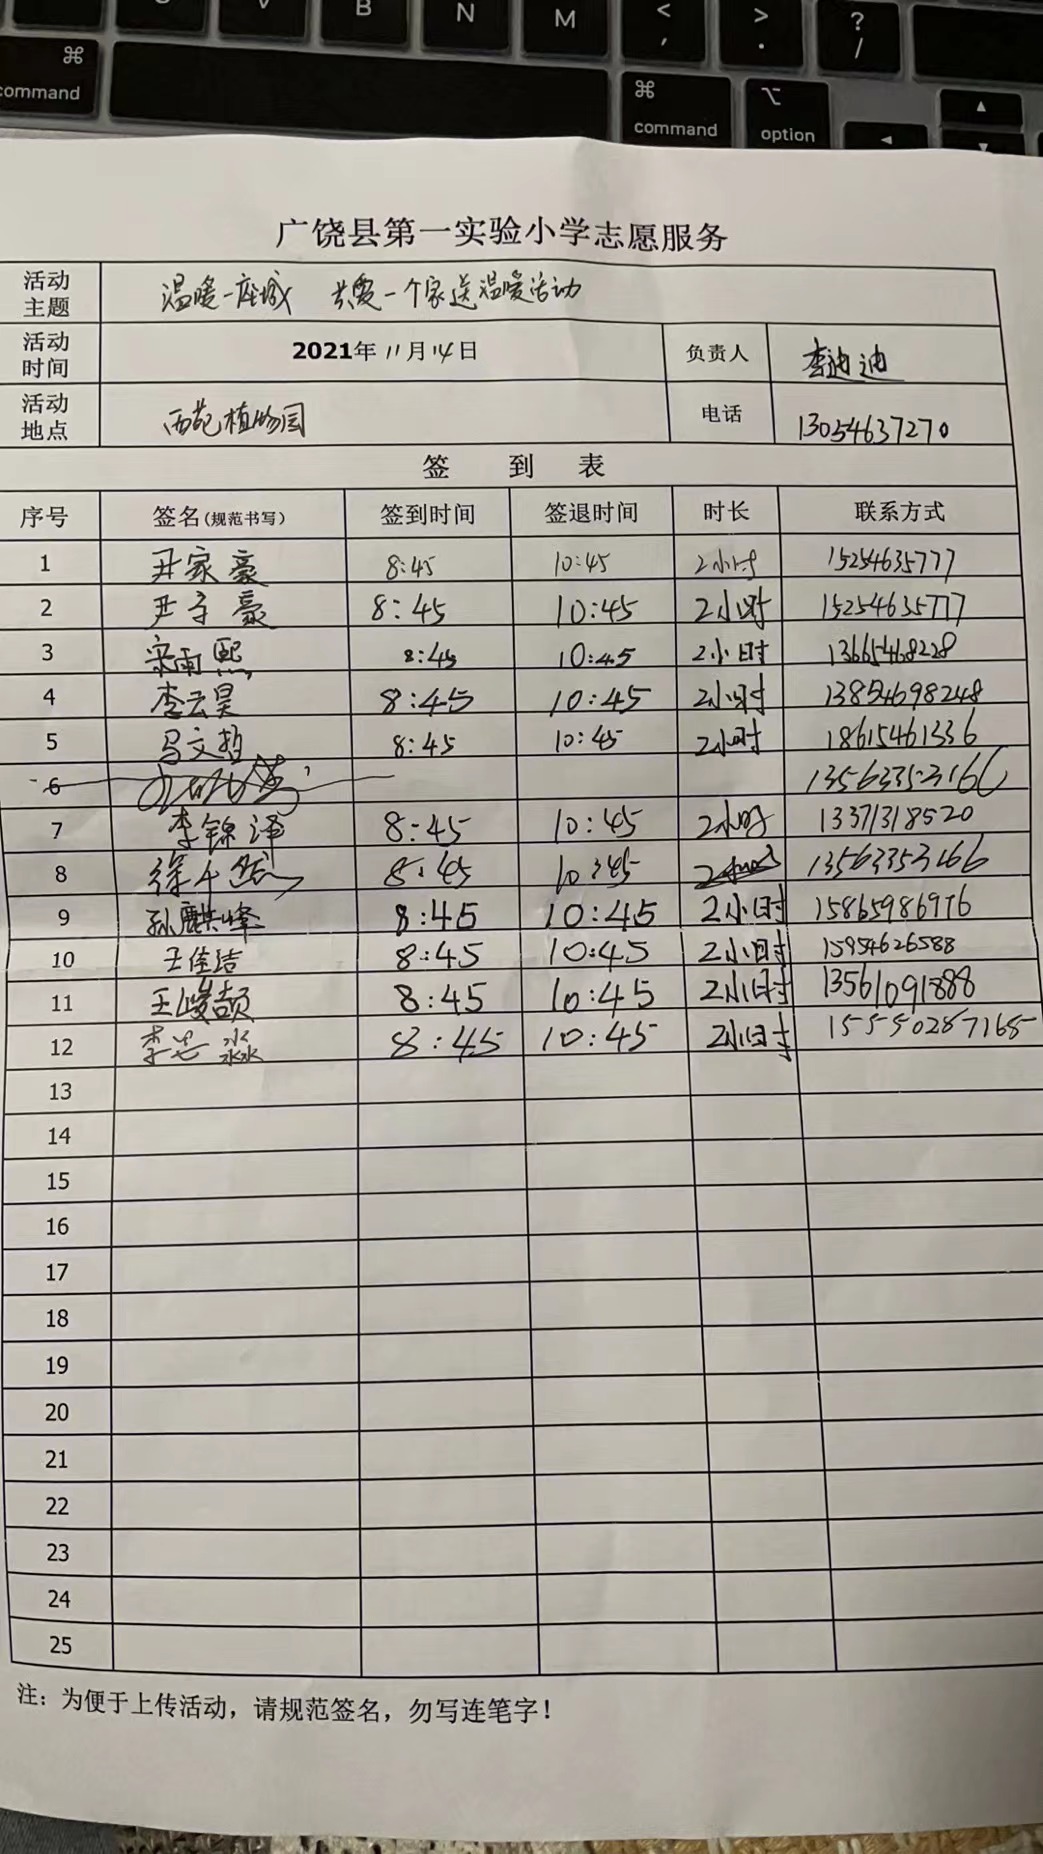 V B N M < , > . ? /
⌘ command ⌘ command ⌥ option
广饶县第一实验小学志愿服务
活动主题 温暖一座城 共爱一个家送温暖活动
活动时间 2021年11月14日 负责人 李迪迪
活动地点 西苑植物园 电话 13054637270
签 到 表
序号 签名(规范书写) 签到时间 签退时间 时长 联系方式
1 尹家豪 8:45 10:45 2小时 15254635777
2 尹子豪 8:45 10:45 2小时 15254635777
3 宋雨熙 8:45 10:45 2小时 13665468228
4 李云昊 8:45 10:45 2小时 13854698248
5 马文哲 8:45 10:45 2小时 18615461336
6 13563353166
7 李锦泽 8:45 10:45 2小时 13371318520
8 徐千然 8:45 10:45 13563353166
9 孙麒峰 8:45 10:45 2小时 15865986976
10 王佳洁 8:45 10:45 2小时 15954626588
11 王峻颉 8:45 10:45 2小时 13561091888
12 李 淼 8:45 10:45 2小时 15550287165
13
14
15
16
17
18
19
20
21
22
23
24
25
注：为便于上传活动，请规范签名，勿写连笔字！